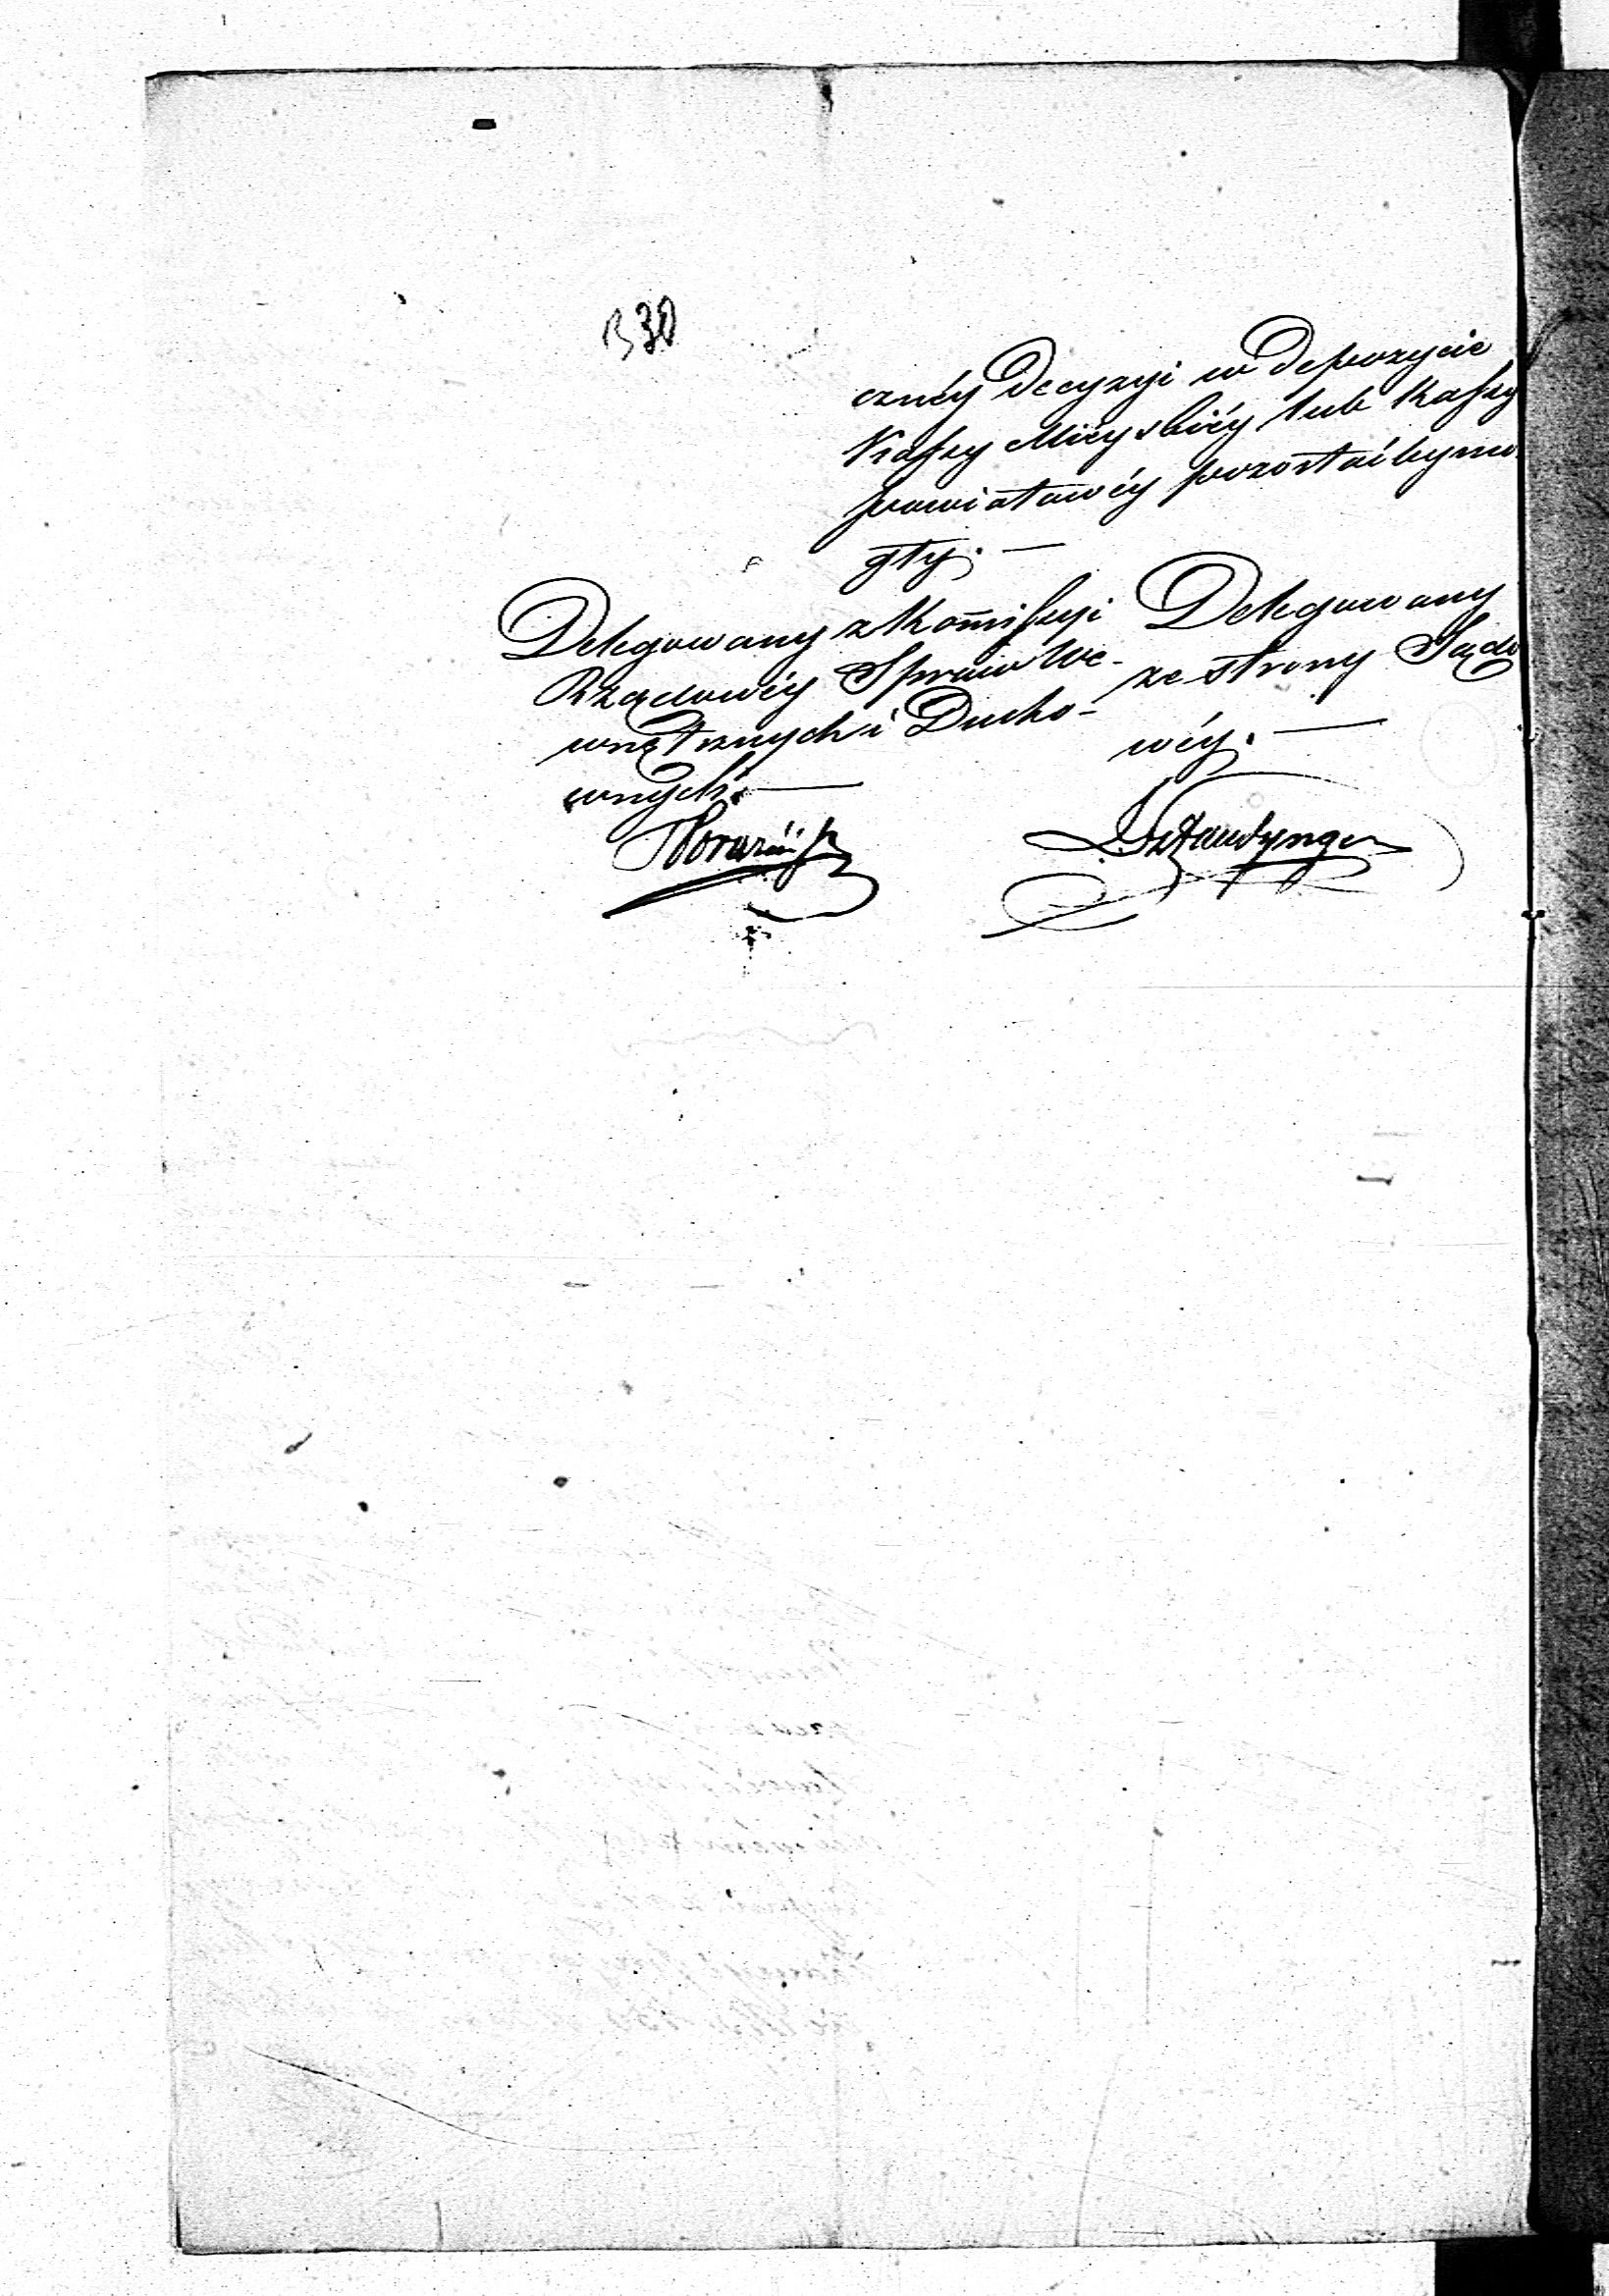 330
cznéy Decyzyi w Depozycie
Kassy Mieyskiéy lub Kassy
powiatowéy pozostaćby mo
gły. —
Delegowany z Kom̄issyi
Rządowéy Spraw We-
wnętrznych i Ducho-
wnych. —
Delegowany
ze strony Sądo
wéy. —
Sztaudynger